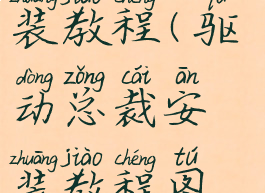 zhuāng jiào chéng qū
装教程(驱
dòng zǒng cái ān
动总裁安
zhuāng jiào chéng tú
装教程图